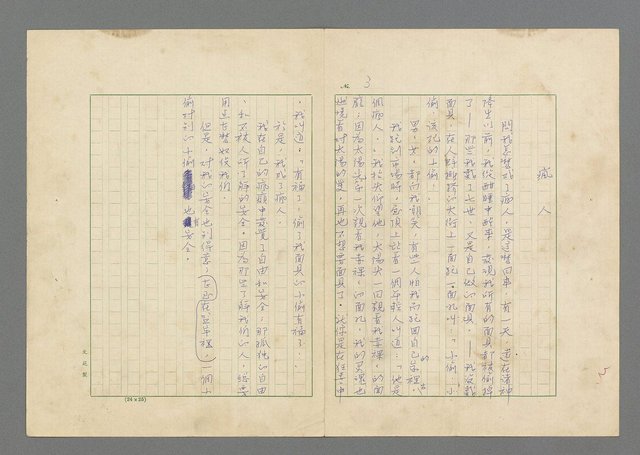 3
瘋人
問我怎麼成了瘋人,是這麼回事:有一天,遠在諸神
降生以前,我從酣睡中醒來,發現我所有的面具都被偷掉
了——那些我戴了七世,又是自己做的面具,——我沒戴
面具,在人群擁擠的大街上一面跑一面叫,「小偷,小
偷,該死的小偷。」
男、女,都向我訕笑,有些人怕我而跑回自己家裡。
我跑到市場時,屋頂上站著一個年輕人叫道:「他是
個瘋人。」我抬頭仰望他,太陽頭一回親著我赤裸的面
龐,因為太陽第一次親著我赤裸的面孔,我的靈魂也
燃著對太陽的愛,再也不想要面具了。好像是在狂喜中
,我叫道:「有福了,偷了我面具的小偷有福了。」
於是,我成了瘋人。
我在自己的瘋癲中發覺了自由和安全,那孤獨的自由
,和不被人所了解的安全,因為那些了解我們的人,總要
用些甚麼奴役我們。
但是,對我的安全也別得意,一個小
偷對別的小偷也安全。
文苑製
(24×25)